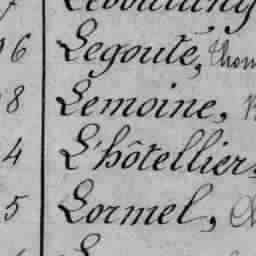 6 Legouté, Thom
8 Lemoine,
4 L'hôtellier,
5 Lormel,